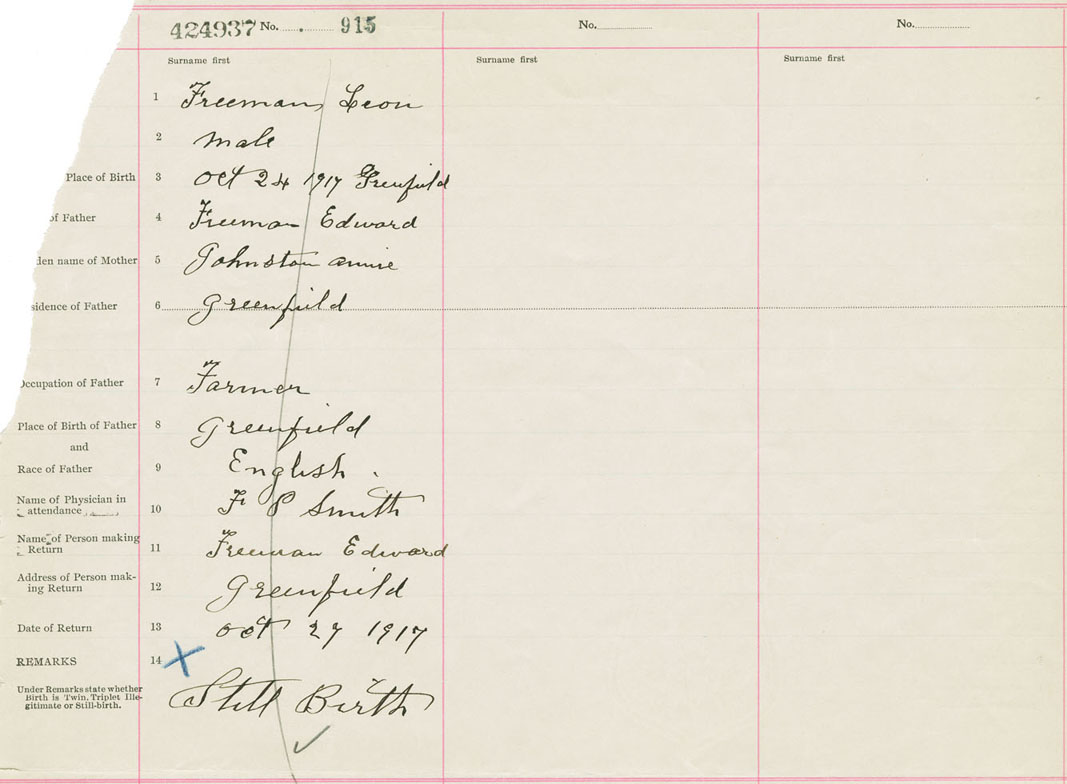 424937 No. 915
No.
No.
Surname first
Surname first
Surname first
1 Freeman, Leon
2 male
Place of Birth 3 Oct 24 1917 Greenfield
of Father 4 Freeman Edward
den name of Mother 5 Johnston annie
sidence of Father 6 Greenfield
Occupation of Father 7 Farmer
Place of Birth of Father 8 Greenfield
and
Race of Father 9 English .
Name of Physician in
attendance 10 F P Smith
Name of Person making
Return 11 Freeman Edward
Address of Person mak-
ing Return 12 Greenfield
Date of Return 13 oct 27 1917
REMARKS 14 X
Under Remarks state whether
Birth is Twin, Triplet Ille-
gitimate or Still-birth.
Still Birth